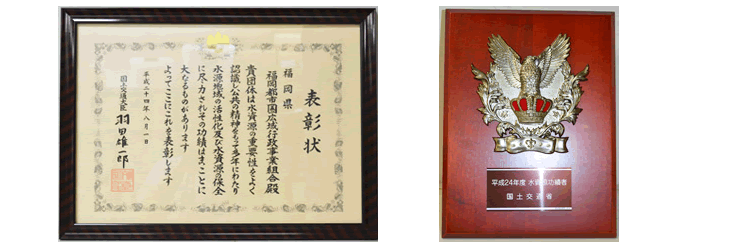 表彰状
福岡県
福岡都市圏広域行政事業組合殿
貴団体は水資源の重要性をよく
認識し公共の精神をもって多年にわたり
水源地域の活性化及び水資源の保全
に尽力されその功績はまことに
大なるものがあります
よってここにこれを表彰します
平成二十四年八月一日
国土交通大臣 羽田雄一郎
平成24年度 水資源功績者
国土交通省